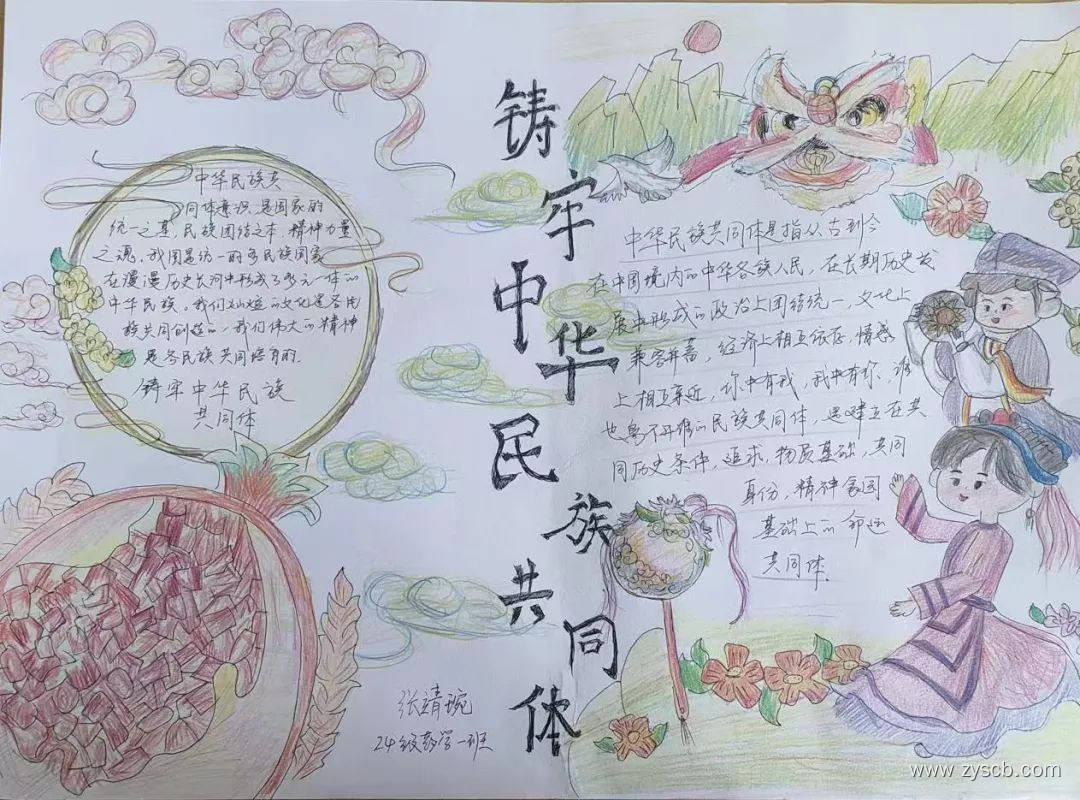 铸牢中华民族共同体
中华民族共
同体意识是国家的
统一之基,民族团结之本,精神力量
之魂。我国是统一的多民族国家
在漫漫历史长河中形成了多元一体的
中华民族。我们灿烂的文化是各民
族共同创造的,我们伟大的精神
是各民族共同培育的.
铸牢中华民族
共同体
中华民族共同体是指从古到今
在中国境内的中华各族人民,在长期历史发
展中形成的政治上团结统一,文化上
兼容并蓄,经济上相互依存,情感
上相互亲近,你中有我,我中有你,谁
也离不开谁的民族共同体,是建立在共
同历史条件,追求,物质基础,共同
身份,精神家园
基础上的命运
共同体.
张靖琬
24级药学一班
www.zyscb.com